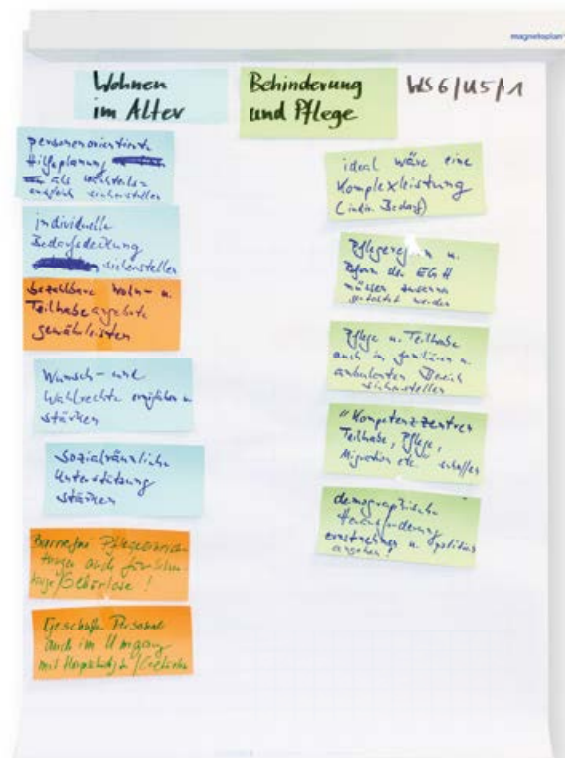 magnetoplan
Wohnen
im Alter
Behinderung
und Pflege
WS6/U5/1
personenorientierte
Hilfeplanung
als
sicherstellen
individuelle
Bedarfsdeckung
sicherstellen
bezahlbare Wohn- u.
Teilhabeangebote
gewährleisten
Wunsch- und
Wahlrechte ermöglichen u.
stärken
Sozialräumliche
Unterstützung
stärken
Barrierefrei Pflegeeinrich
tungen auch für
/Gehörlose!
Geschultes Personal
auch im Umgang
mit
ideal wäre eine
Komplexleistung
(indiv. Bedarf)
Pflegereform u.
Reform der EGH
müssen zusammen
gedacht werden
Pflege u. Teilhabe
auch im familiären u.
ambulanten Bereich
sicherstellen
"Kompetenzzentren
Teilhabe, Pflege,
Migration etc." schaffen
demographische
Herausforderung
ernstnehmen u.
angehen!